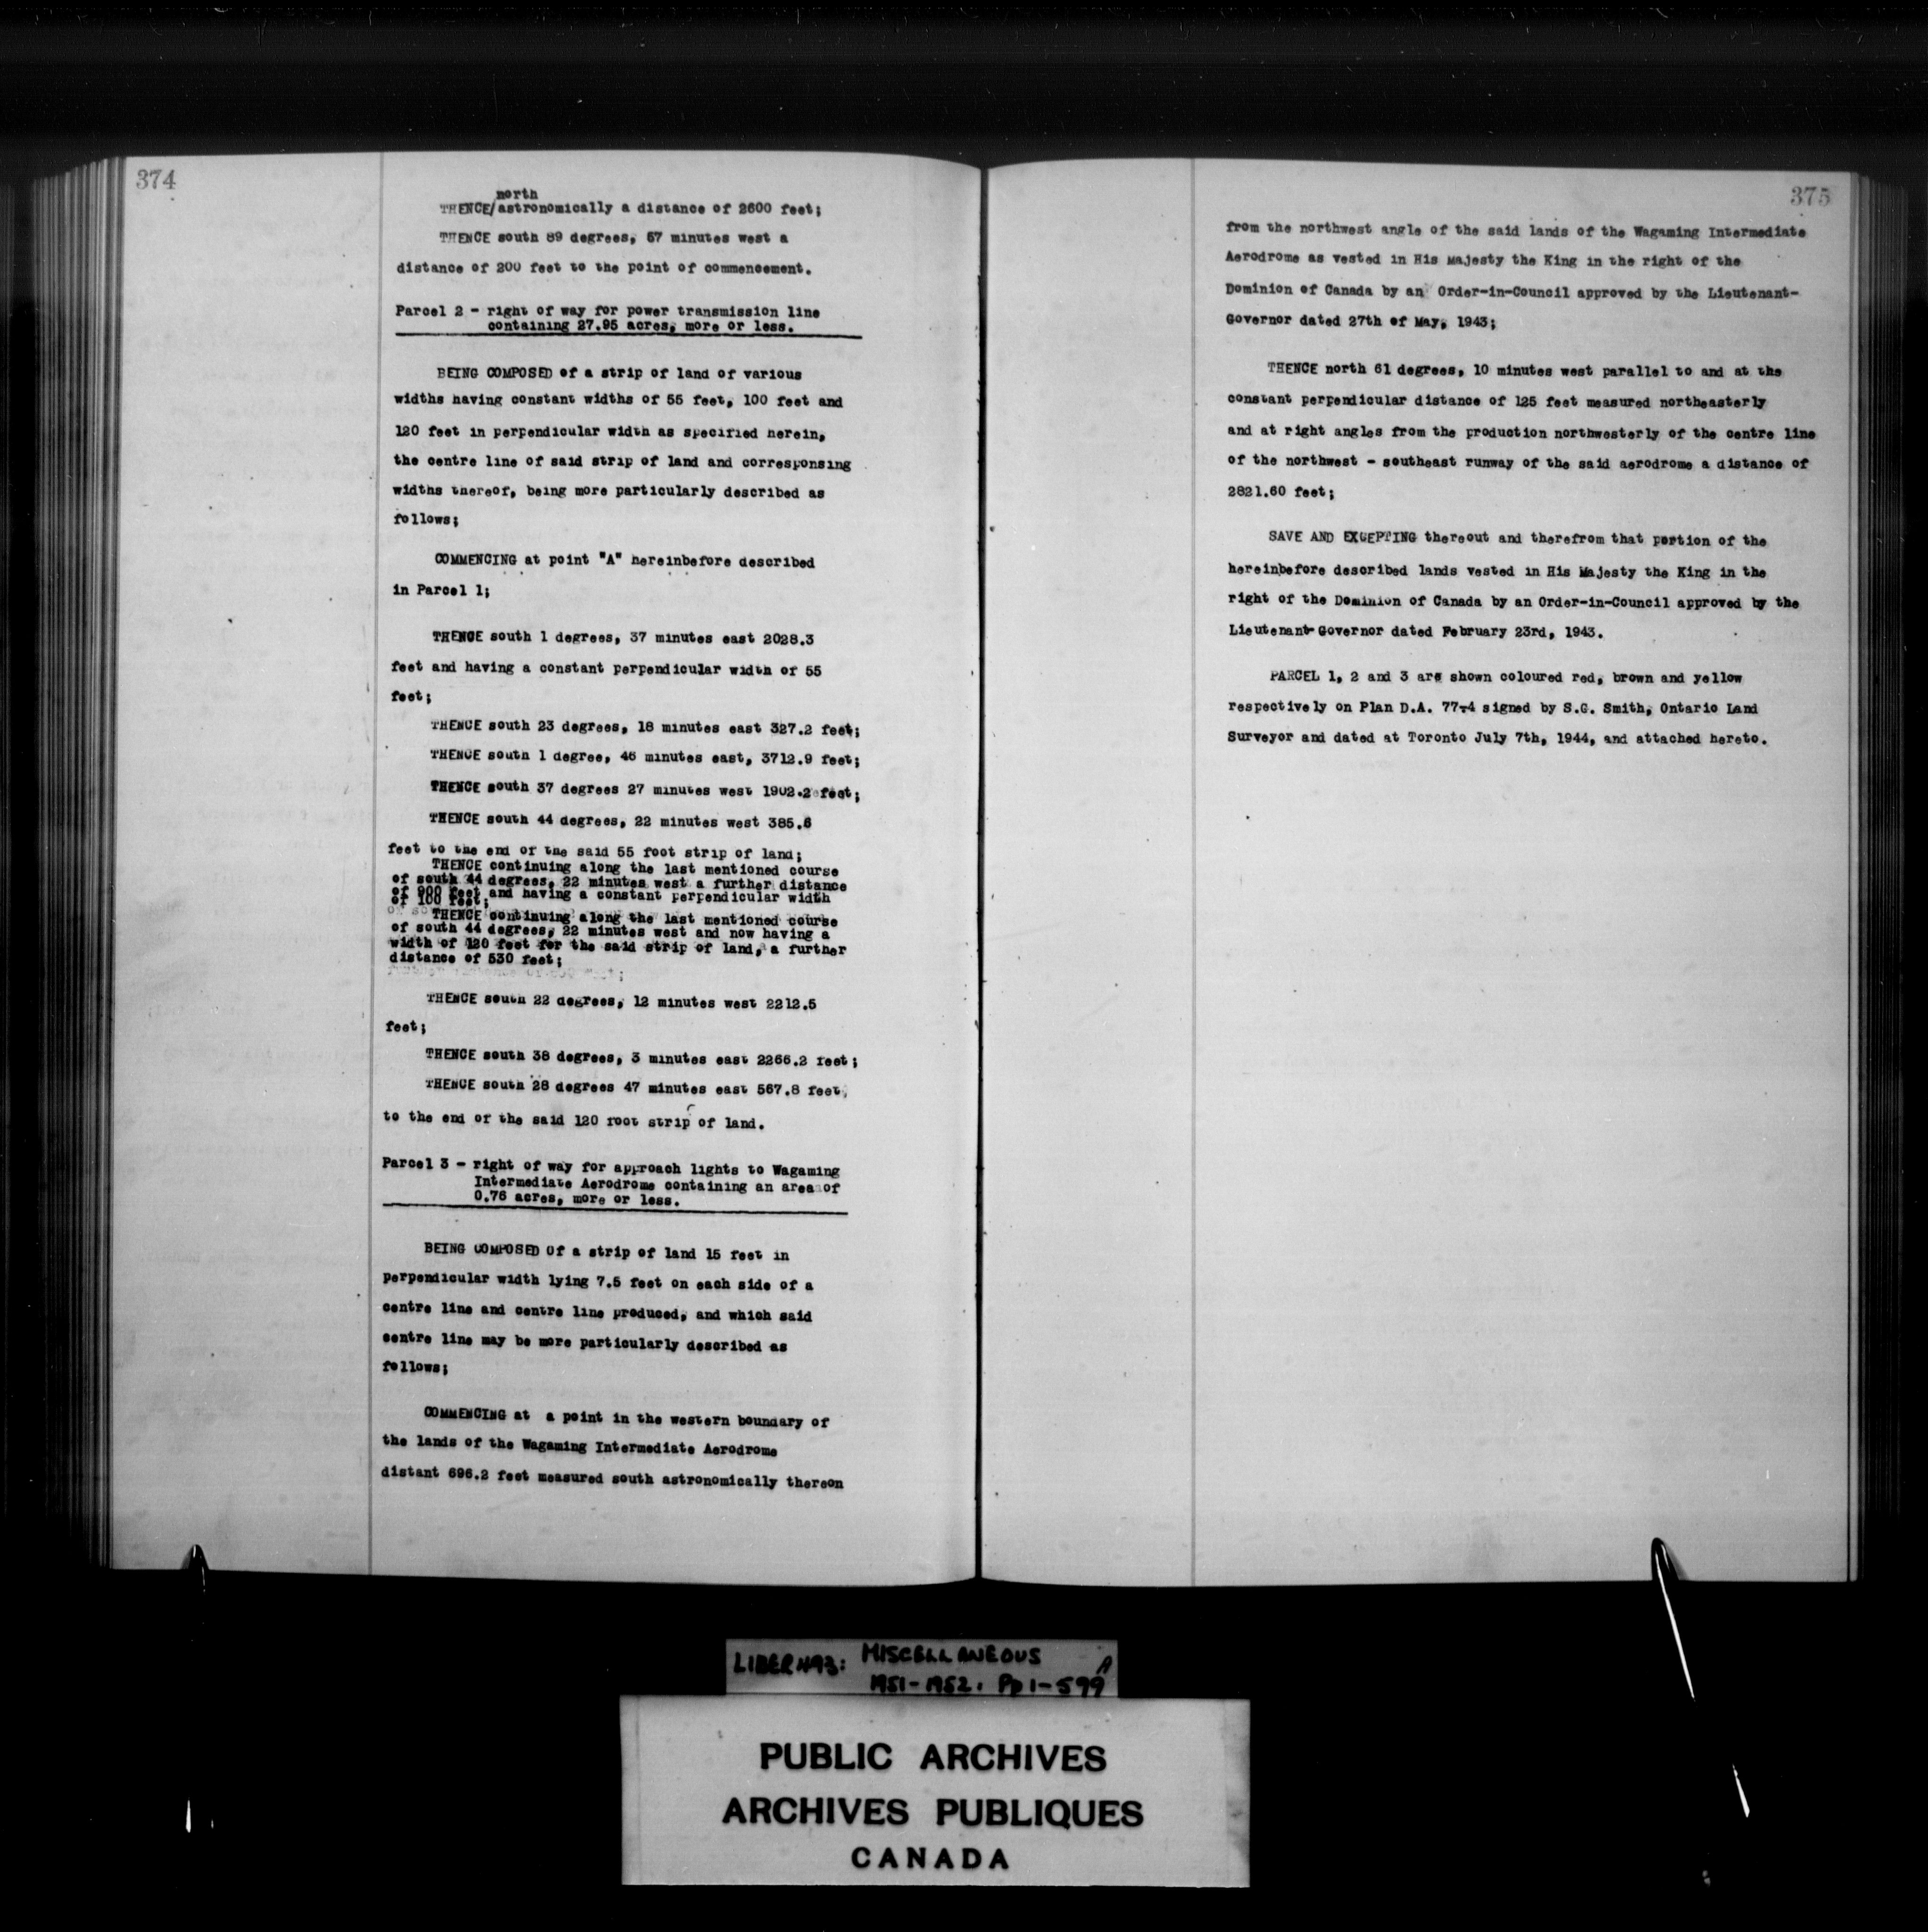 374
north
THENCE/astronomically a distance of 2600 feet;
THENCE south 89 degrees, 57 minutes west a
distance of 200 feet to the point of commencement.
Parcel 2 - right of way for power transmission line
containing 27.95 acres, more or less.
BEING COMPOSED of a strip of land of various
widths having constant widths of 55 feet, 100 feet and
120 feet in perpendicular width as specified herein,
the centre line of said strip of land and corresponsing
widths thereof, being more particularly described as
follows;
COMMENCING at point "A" hereinbefore described
in Parcel 1;
THENCE south 1 degrees, 37 minutes east 2028.3
feet and having a constant perpendicular width of 55
feet;
THENCE south 23 degrees, 18 minutes east 327.2 feet;
THENCE south 1 degree, 46 minutes east, 3712.9 feet;
THENCE south 37 degrees 27 minutes west 1902.2 feet;
THENCE south 44 degrees, 22 minutes west 385.6
feet to the end of the said 55 foot strip of land;
THENCE continuing along the last mentioned course
of south 44 degrees, 22 minutes west a further distance
of 900 feet and having a constant perpendicular width
of 100 feet;
THENCE continuing along the last mentioned course
of south 44 degrees, 22 minutes west and now having a
width of 120 feet for the said strip of land, a further
distance of 530 feet;
THENCE south 22 degrees, 12 minutes west 2212.5
feet;
THENCE south 38 degrees, 3 minutes east 2266.2 feet;
THENCE south 28 degrees 47 minutes east 567.8 feet,
to the end of the said 120 foot strip of land.
Parcel 3 - right of way for approach lights to Wagaming
Intermediate Aerodrome containing an area of
0.76 acres, more or less.
BEING COMPOSED Of a strip of land 15 feet in
perpendicular width lying 7.5 feet on each side of a
centre line and centre line produced, and which said
centre line may be more particularly described as
follows;
COMMENCING at a point in the western boundary of
the lands of the Wagaming Intermediate Aerodrome
distant 696.2 feet measured south astronomically thereon
375
from the northwest angle of the said lands of the Wagaming Intermediate
Aerodrome as vested in His Majesty the King in the right of the
Dominion of Canada by an Order-in-Council approved by the Lieutenant-
Governor dated 27th of May, 1943;
THENCE north 61 degrees, 10 minutes west parallel to and at the
constant perpendicular distance of 125 feet measured northeasterly
and at right angles from the production northwesterly of the centre line
of the northwest - southeast runway of the said aerodrome a distance of
2821.60 feet;
SAVE AND EXCEPTING thereout and therefrom that portion of the
hereinbefore described lands vested in His Majesty the King in the
right of the Dominion of Canada by an Order-in-Council approved by the
Lieutenant-Governor dated February 23rd, 1943.
PARCEL 1, 2 and 3 are shown coloured red, brown and yellow
respectively on Plan D.A. 77-4 signed by S.G. Smith, Ontario Land
Surveyor and dated at Toronto July 7th, 1944, and attached hereto.
LIBER 493: MISCELLANEOUS A
1951-1952. Pp 1-599
PUBLIC ARCHIVES
ARCHIVES PUBLIQUES
CANADA